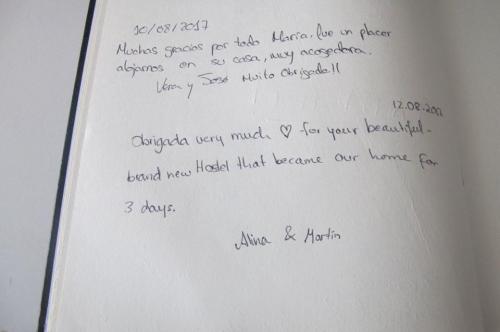 10/08/2017
Muchas gracias por todo María, fue un placer
alojarnos en su casa, muy acogedora.
Vera y José Muito Obrigada!!
12.08.201
Obrigada very much ♡ for your beautiful -
brand new Hostel that became our home for
3 days.
Alina & Martin